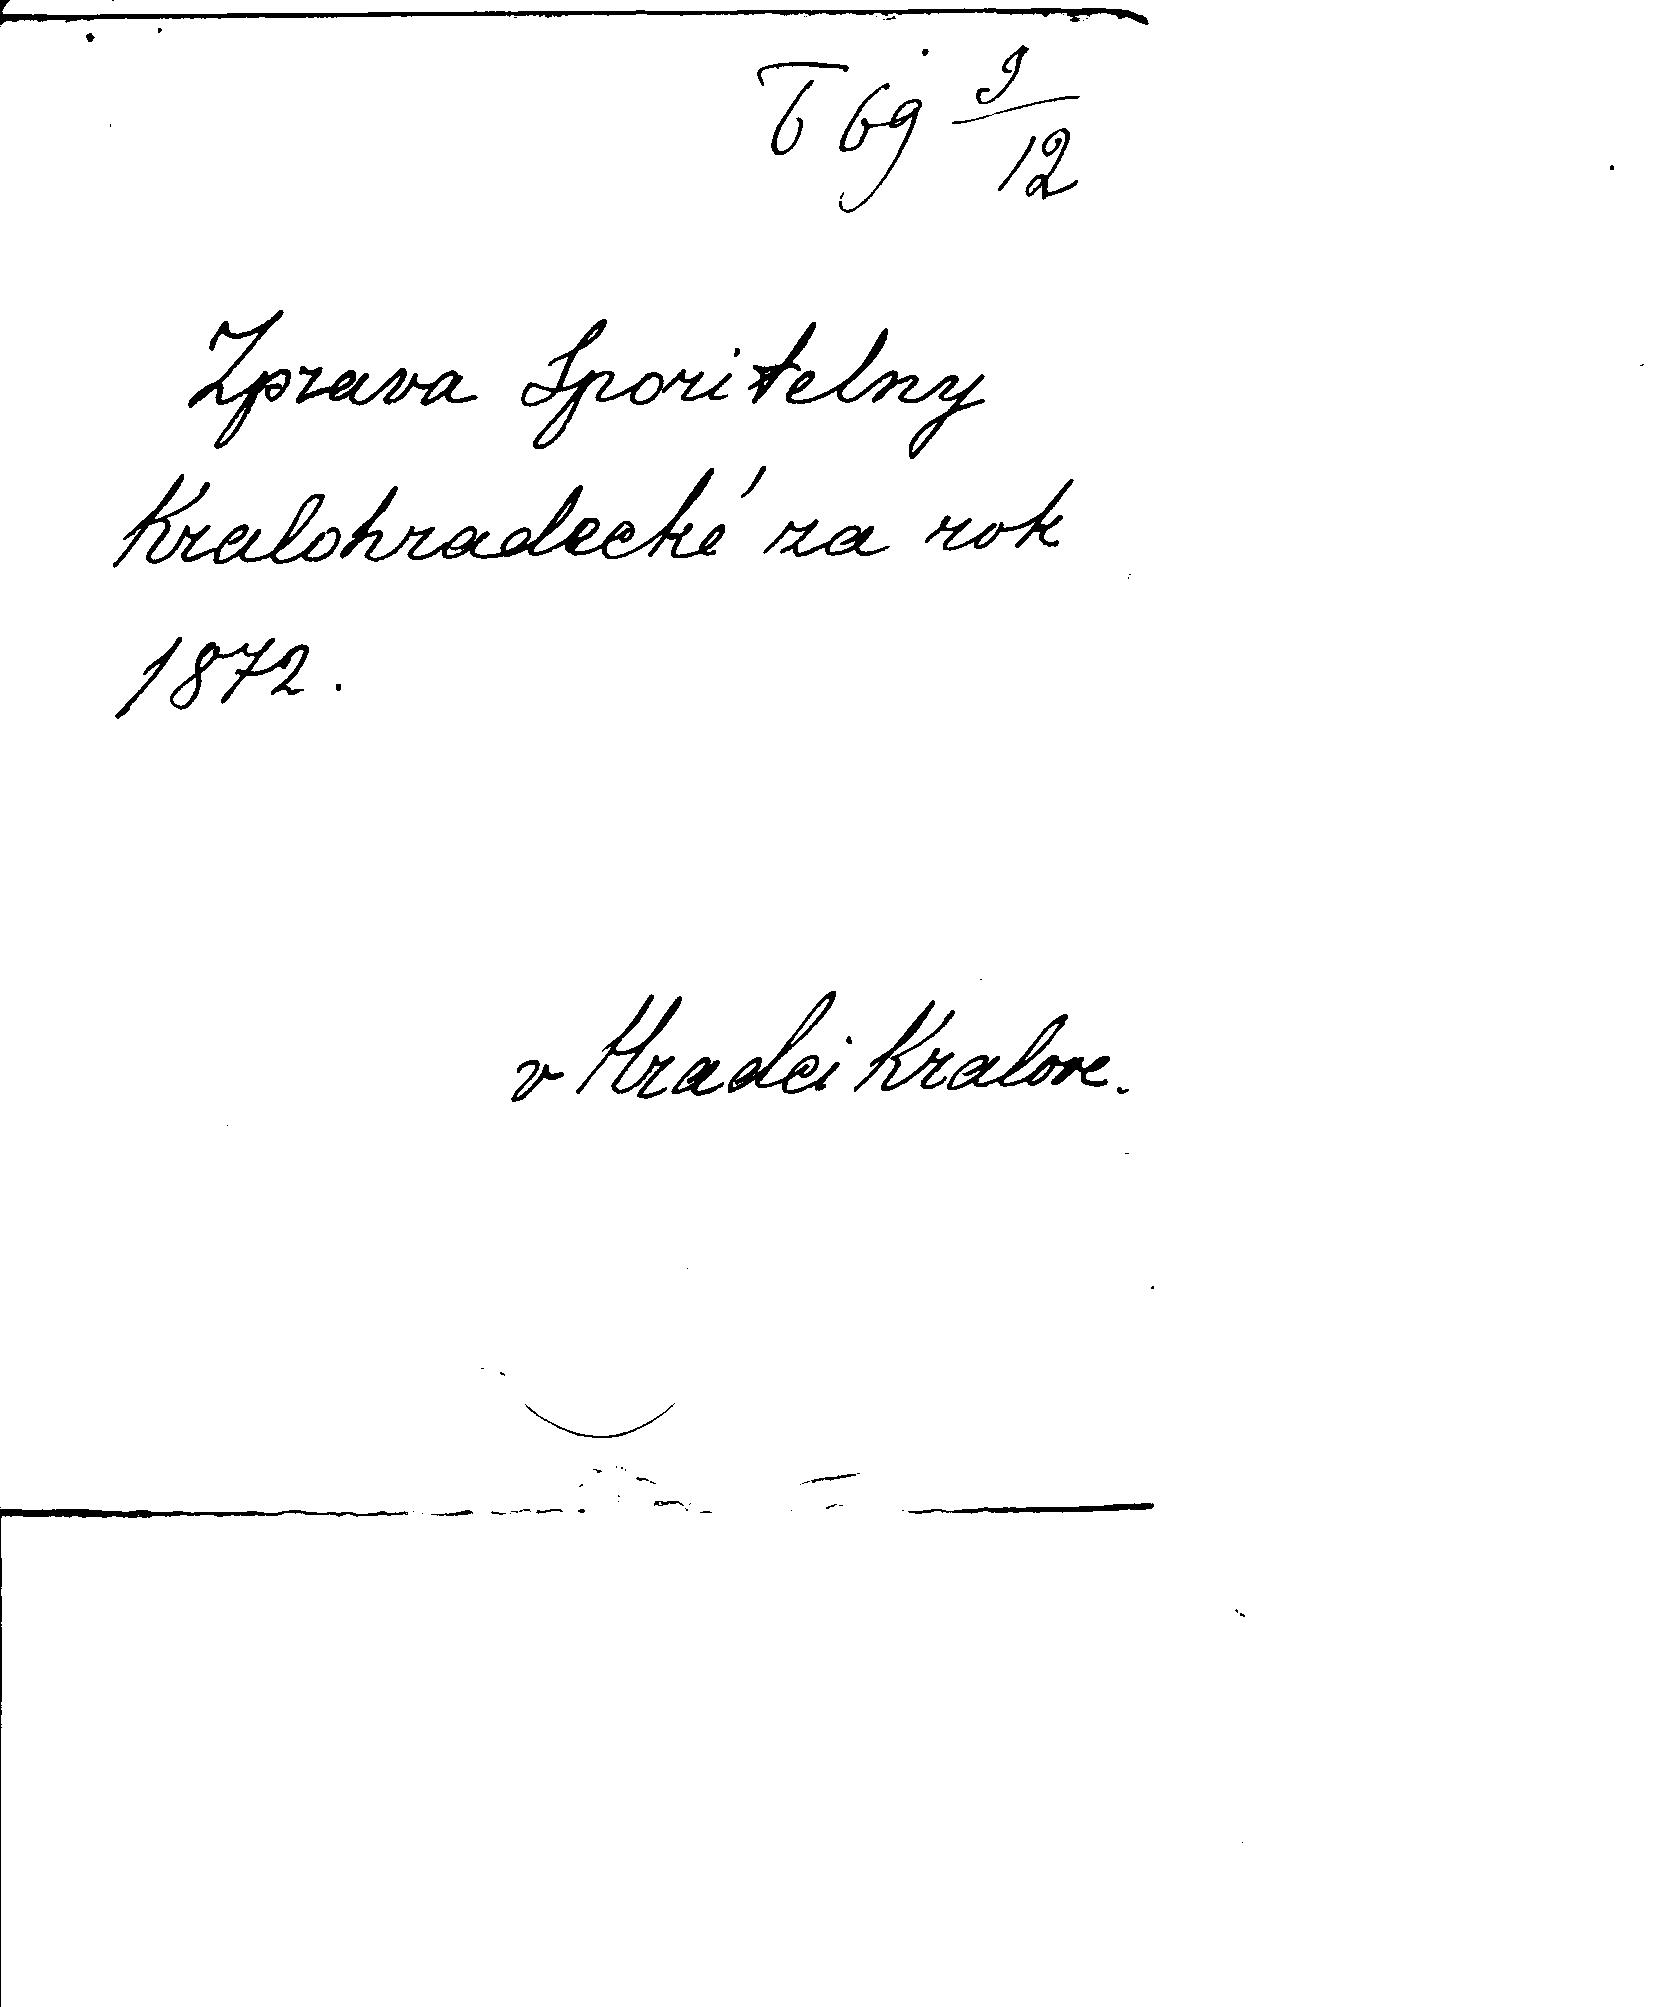 T 69 9/12
Zprava Sporitelny
Kralohradecké za rok
1872.
v Hradci Kralove.